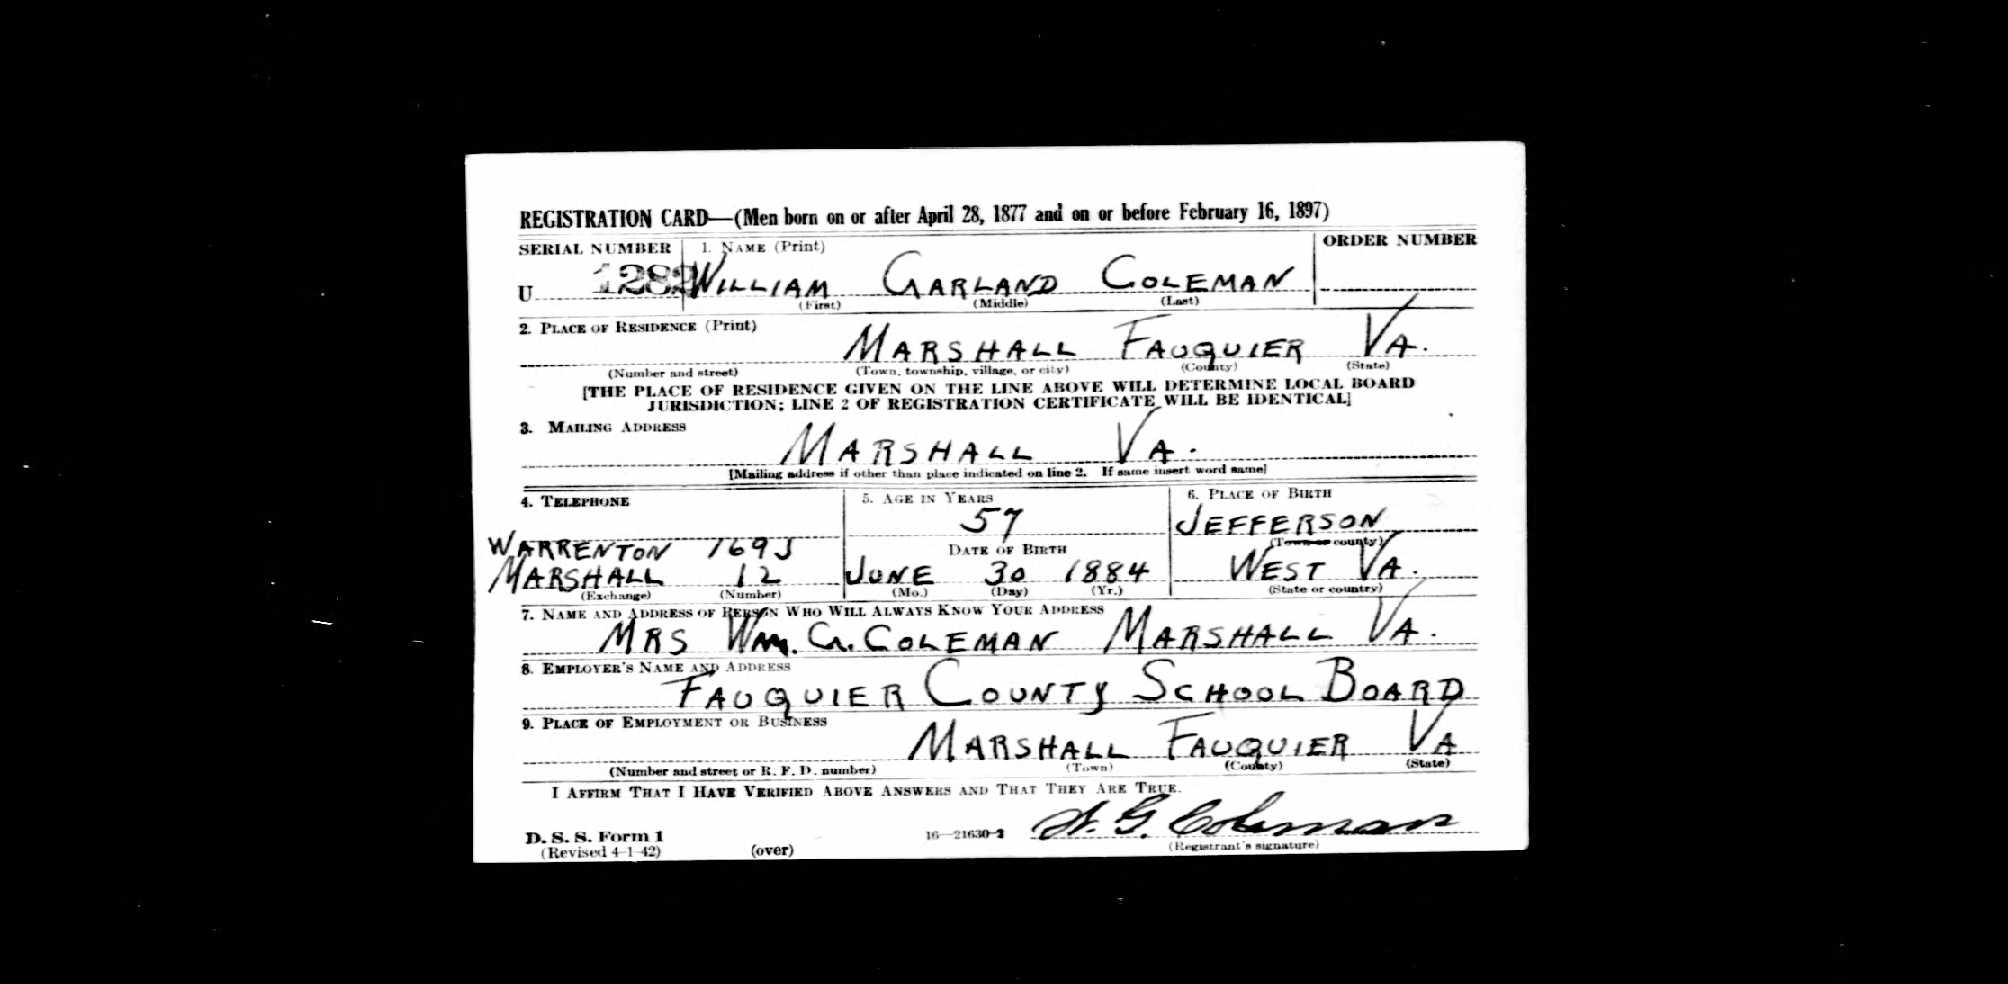 REGISTRATION CARD—(Men born on or after April 28, 1877 and on or before February 16, 1897)
SERIAL NUMBER 1. NAME (Print) ORDER NUMBER
U WILLIAM GARLAND COLEMAN
(First) (Middle) (Last)
2. PLACE OF RESIDENCE (Print)
MARSHALL FAUQUIER VA.
(Number and street) (Town, township, village, or city) (County) (State)
[THE PLACE OF RESIDENCE GIVEN ON THE LINE ABOVE WILL DETERMINE LOCAL BOARD
JURISDICTION; LINE 2 OF REGISTRATION CERTIFICATE WILL BE IDENTICAL]
3. MAILING ADDRESS
MARSHALL VA.
[Mailing address if other than place indicated on line 2. If same insert word same]
4. TELEPHONE 5. AGE IN YEARS 6. PLACE OF BIRTH
57 JEFFERSON
(Town or county)
WARRENTON 169J DATE OF BIRTH
MARSHALL 12 JUNE 30 1884 WEST VA.
(Exchange) (Number) (Mo.) (Day) (Yr.) (State or country)
7. NAME AND ADDRESS OF PERSON WHO WILL ALWAYS KNOW YOUR ADDRESS
MRS WM. G. COLEMAN MARSHALL VA.
8. EMPLOYER'S NAME AND ADDRESS
FAUQUIER COUNTY SCHOOL BOARD
9. PLACE OF EMPLOYMENT OR BUSINESS
MARSHALL FAUQUIER VA
(Number and street or R. F. D. number) (Town) (County) (State)
I AFFIRM THAT I HAVE VERIFIED ABOVE ANSWERS AND THAT THEY ARE TRUE.
W. G. Coleman
D. S. S. Form 1 16—21630-2
(Revised 4-1-42) (over) (Registrant's signature)